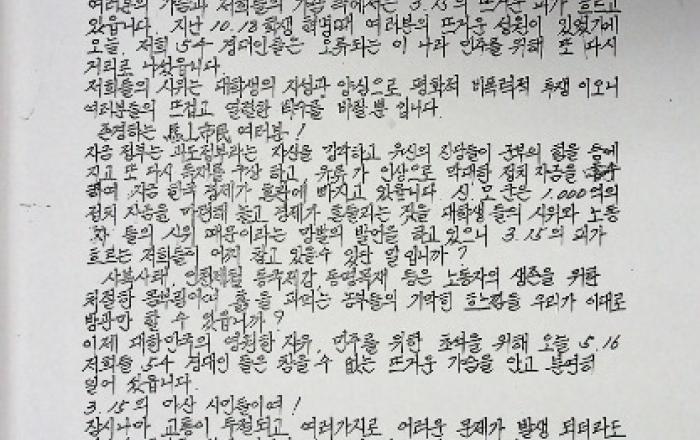 여러분의 가슴과 저희들의 가슴 속에서는 3.15의 뜨거운 피가 흐르고
있읍니다. 지난 10.18 학생 혁명때 여러분의 뜨거운 성원이 있었기에
오늘, 저희 54 경대인들은 오류되는 이 나라 민주를 위해 또 다시
거리로 나섰읍니다.
저희들의 시위는 대학생의 지성과 양심으로 평화적 비폭력적 투쟁 이오니
여러분들의 뜨겁고 열렬한 박수를 바랄뿐 입니다.
존경하는 馬山市民 여러분!
지금 정부는 과도정부라는 자신을 망각하고 유신의 잔당들이 군부의 힘을 등에
지고 또 다시 독재를 구상 하고, 유류가 인상으로 막대한 정치 자금을
하여 지금 한국 경제가 혼란에 빠지고 있읍니다. 신 모 군은 1,000억의
정치 자금을 마련해 놓고 경제가 흔들리는 것을 대학생 들의 시위와 노동
자 들의 시위 때문이라는 망발의 발언을 하고 있으니 3.15의 피가
흐르는 저희들이 어찌 참고 있을수 있단 말입니까?
사북사태, 인천제철 동국제강, 동명목재 등은 노동자의 생존을 위한
처절한 몸부림이며 흙을 파먹는 농부들의 기막힌 한느낌을 우리가 이대로
방관만 할 수 있읍니까?
이제 대한민국의 영원한 자유, 민주를 위한 초석을 위해 오늘 5.16
저희들 54 경대인 들은 참을 수 없는 뜨거운 가슴을 안고 분연히
일어 섰읍니다.
3.15의 마산 시민들이여!
잠시나마 교통이 두절되고 여러가지로 어려운 문제가 발생 되더라도